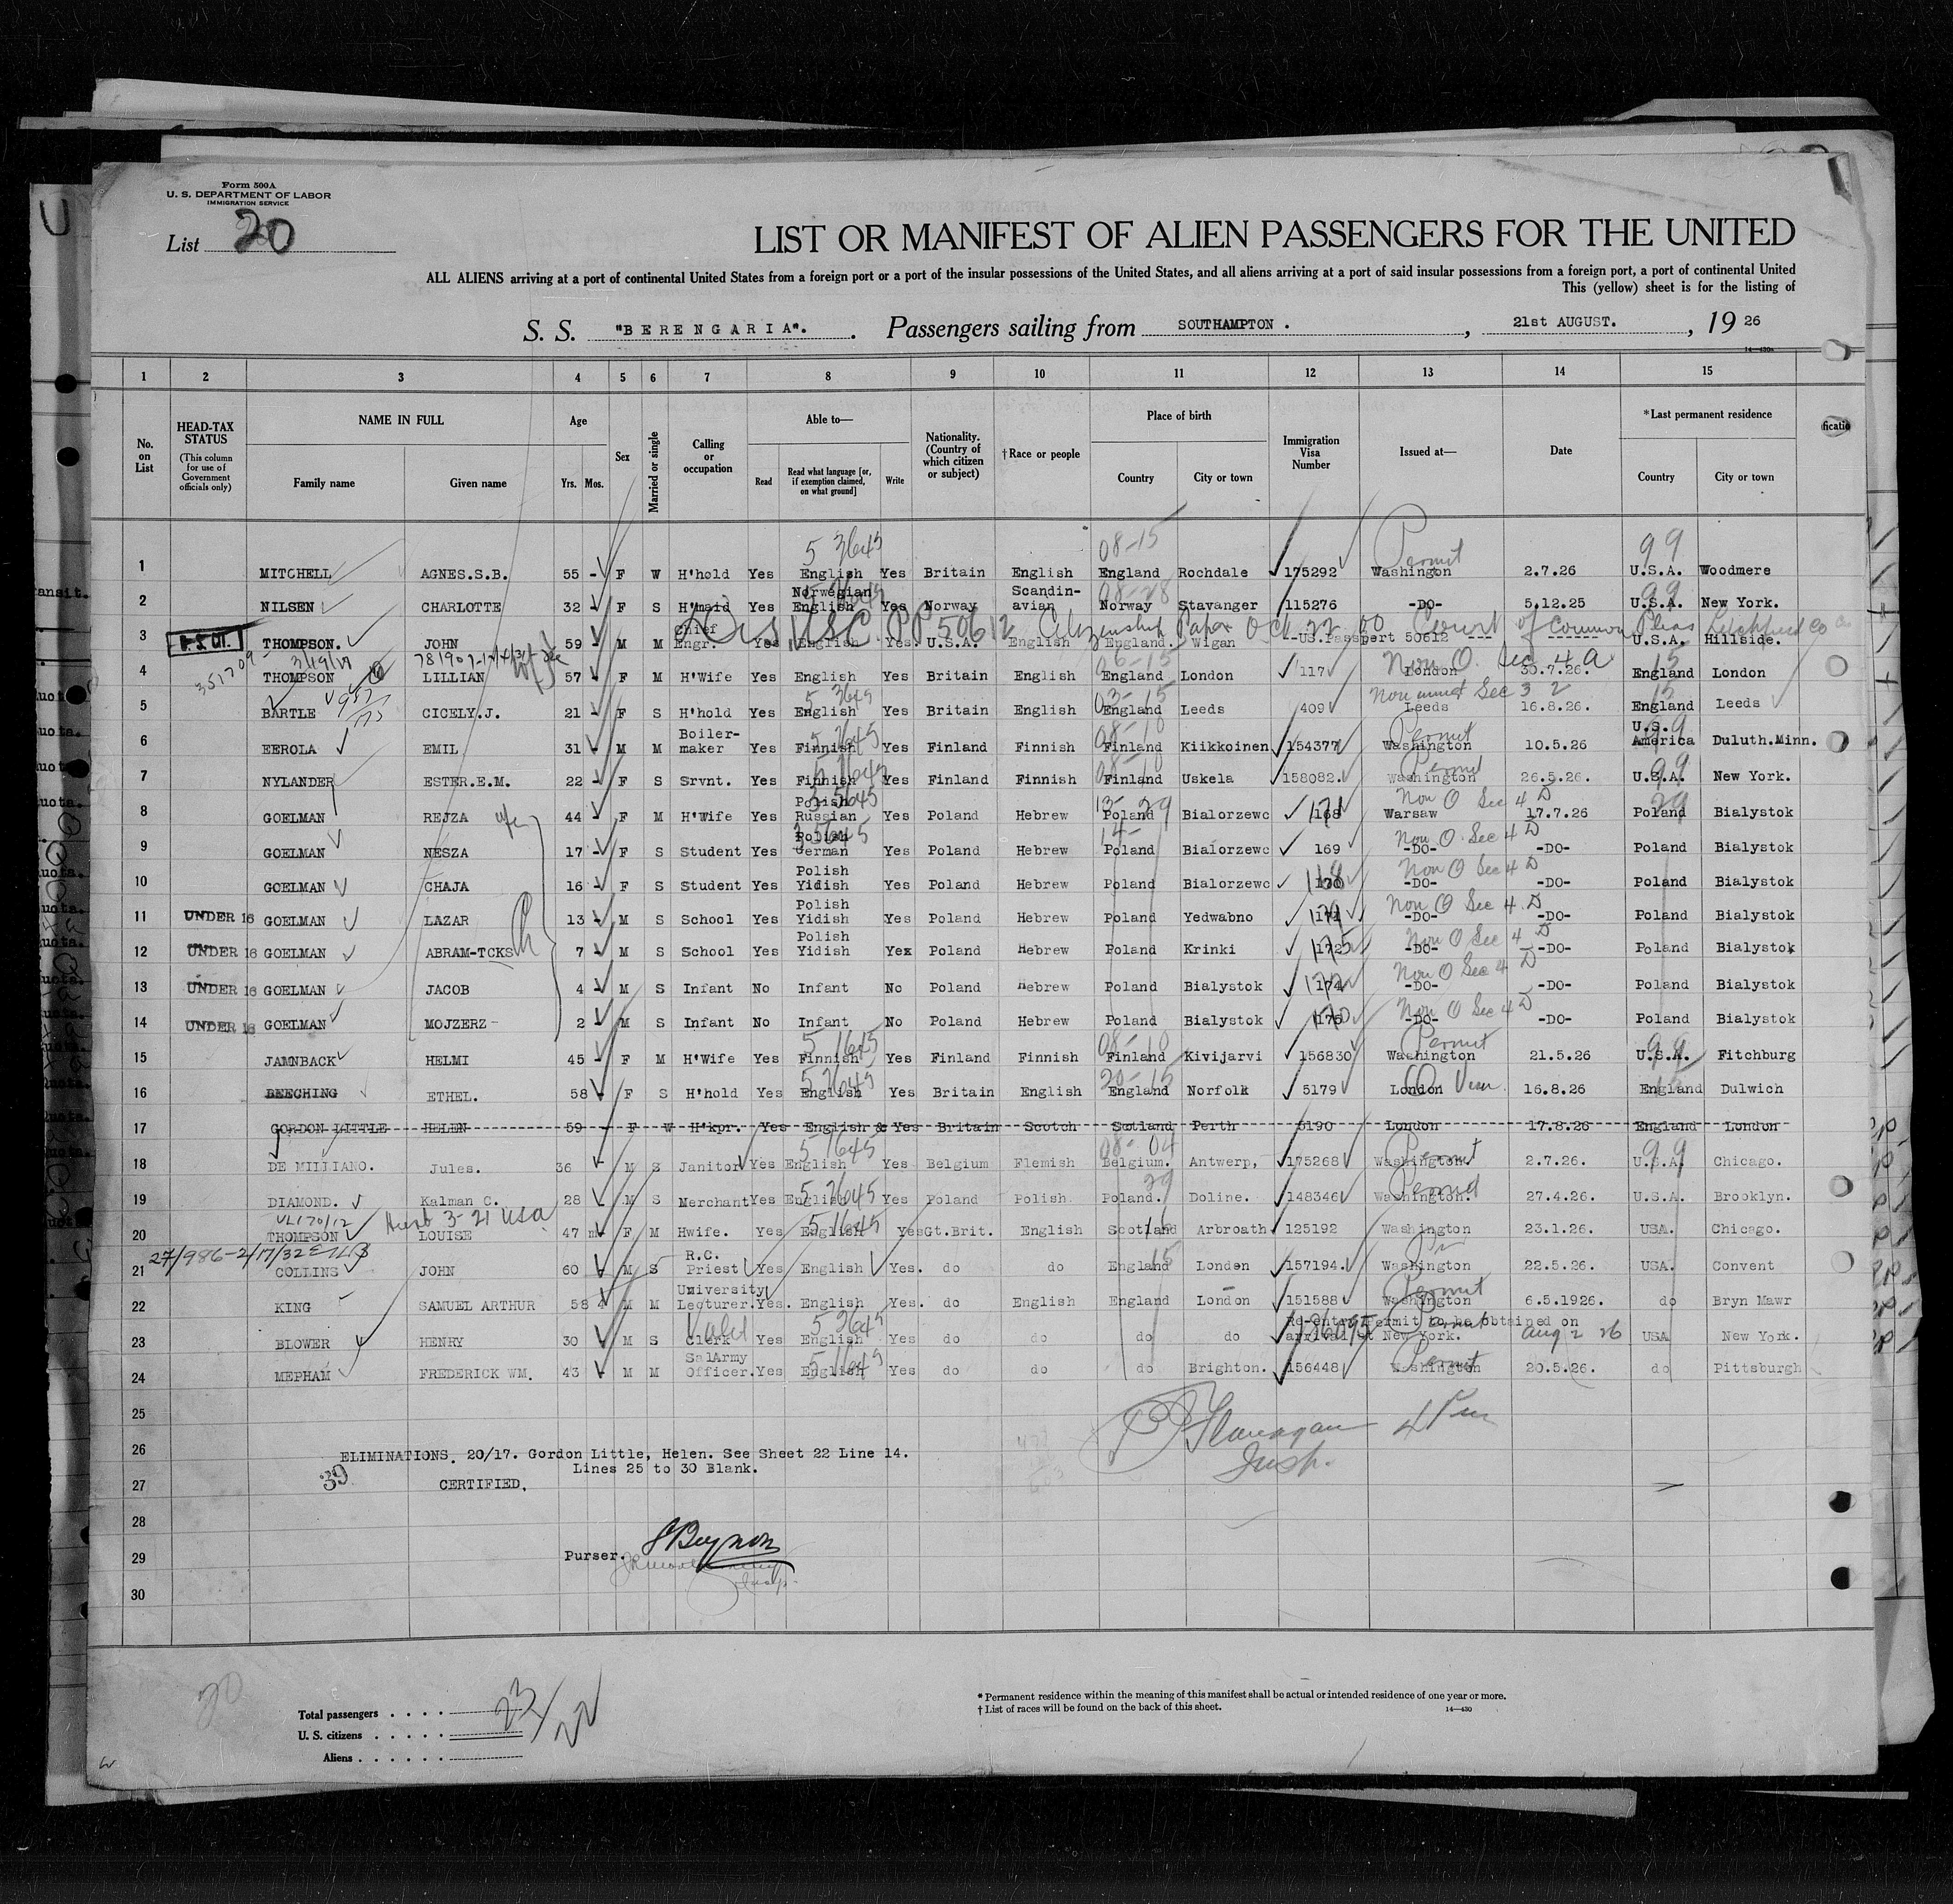 Form 500A
U. S. DEPARTMENT OF LABOR
IMMIGRATION SERVICE
List 20
LIST OR MANIFEST OF ALIEN PASSENGERS FOR THE UNITED
ALL ALIENS arriving at a port of continental United States from a foreign port or a port of the insular possessions of the United States, and all aliens arriving at a port of said insular possessions from a foreign port, a port of continental United
This (yellow) sheet is for the listing of
S. S. "BERENGARIA". Passengers sailing from SOUTHAMPTON. , 21st AUGUST. , 19 26
14—430a
1 2 3 4 5 6 7 8 9 10 11 12 13 14 15
No. on List
HEAD-TAX STATUS (This column for use of Government officials only)
NAME IN FULL Family name Given name
Age Yrs. Mos.
Sex
Married or single
Calling or occupation
Able to— Read Read what language [or, if exemption claimed, on what ground] Write
Nationality. (Country of which citizen or subject)
†Race or people
Place of birth Country City or town
Immigration Visa Number
Issued at—
Date
*Last permanent residence Country City or town
1 MITCHELL AGNES.S.B. 55 - F W H'hold Yes English Yes Britain English England Rochdale 175292 Washington Permit 2.7.26 U.S.A. Woodmere
2 NILSEN CHARLOTTE 32 - F S H'maid Yes Norwegian English Yes Norway Scandin-avian Norway Stavanger 115276 -DO- 5.12.25 U.S.A. New York.
3 THOMPSON. JOHN 59 - M M Chief Engr. Yes English Yes. U.S.A. English England. Wigan -US.Passport 50612 --- U.S.A. Hillside.
U.S.C. PP 50612 Citizenship Paper Oct 22 00 Court of Common Pleas Litchfield Co
4 THOMPSON LILLIAN 57 - F M H'Wife Yes English Yes Britain English England London 117 London Non Q. Sec 4 a 30.7.26. England London
5 BARTLE CICELY.J. 21 - F S H'hold Yes English Yes Britain English England Leeds 409 Leeds Sec 3 2 16.8.26. England Leeds
6 EEROLA EMIL 31 - M M Boiler-maker Yes Finnish Yes Finland Finnish Finland Kiikkoinen 154377 Washington Permit 10.5.26 U.S. America Duluth.Minn.
7 NYLANDER ESTER.E.M. 22 - F S Srvnt. Yes Finnish Yes Finland Finnish Finland Uskela 158082. Washington Permit 26.5.26. U.S.A. New York.
8 GOELMAN REJZA 44 - F M H'Wife Yes Polish Russian Yes Poland Hebrew Poland Bialorzewc 168 171 Warsaw Non Q Sec 4 D 17.7.26 Poland Bialystok
9 GOELMAN NESZA 17 - F S Student Yes Polish German Yes Poland Hebrew Poland Bialorzewc 169 -DO- Non Q. Sec 4 D -DO- Poland Bialystok
10 GOELMAN CHAJA 16 - F S Student Yes Polish Yidish Yes Poland Hebrew Poland Bialorzewc -DO- Non Q Sec 4 D -DO- Poland Bialystok
11 UNDER 16 GOELMAN LAZAR 13 - M S School Yes Polish Yidish Yes Poland Hebrew Poland Yedwabno -DO- Non Q Sec 4. D -DO- Poland Bialystok
12 UNDER 16 GOELMAN ABRAM-TCKS 7 - M S School Yes Polish Yidish Yex Poland Hebrew Poland Krinki 172 175 -DO- Non Q Sec 4 D -DO- Poland Bialystok
13 UNDER 16 GOELMAN JACOB 4 - M S Infant No Infant No Poland Hebrew Poland Bialystok 174 -DO- Non Q Sec 4 D -DO- Poland Bialystok
14 UNDER 16 GOELMAN MOJZERZ - 2 - M S Infant No Infant No Poland Hebrew Poland Bialystok -DO- Non Q Sec 4 D -DO- Poland Bialystok
15 JAMNBACK HELMI 45 - F M H'Wife Yes Finnish Yes Finland Finnish Finland Kivijarvi 156830 Washington Permit 21.5.26 U.S.A. Fitchburg
16 BEECHING ETHEL. 58 - F S H'hold Yes English Yes Britain English England Norfolk 5179 London 16.8.26 England Dulwich
17 GORDON LITTLE HELEN 59 F W H'kpr. Yes English & Yes Britain Scotch Scotland Perth 5190 London 17.8.26 England London
18 DE MILLIANO. Jules. 36 - M S Janitor Yes English Yes Belgium Flemish Belgium. Antwerp, 175268 Washington. Permit 2.7.26. U.S.A. Chicago.
19 DIAMOND. Kalman C. 28 M S Merchant Yes English Yes Poland Polish. Poland. Doline. 148346 Washington. Permit 27.4.26. U.S.A. Brooklyn.
20 THOMPSON LOUISE 47 m F M Hwife. Yes English Yes Gt.Brit. English Scotland Arbroath 125192 Washington 23.1.26. USA. Chicago.
21 COLLINS JOHN 60 - M S R.C. Priest Yes English Yes. do do England London 157194. Washington 22.5.26. USA. Convent
22 KING SAMUEL ARTHUR 58 4 M M University Lecturer. Yes. English Yes. do English England London 151588 Washington Permit 6.5.1926. do Bryn Mawr
23 BLOWER HENRY 30 M S Clerk Valet Yes English Yes do do do do Re-enter Permit to be obtained on arrival at New York. Aug 2 26 USA New York.
24 MEPHAM FREDERICK WM. 43 M M SalArmy Officer. Yes English Yes do do do Brighton. 156448 Washington Permit 20.5.26. do Pittsburgh
25
26 ELIMINATIONS. 20/17. Gordon Little, Helen. See Sheet 22 Line 14.
Lines 25 to 30 Blank.
39
27 CERTIFIED.
28
29 Purser. JBeynon
30
P P Flanagan
Insp.
20
Total passengers . . . . 23/22
U. S. citizens . . . . .
Aliens . . . . . .
* Permanent residence within the meaning of this manifest shall be actual or intended residence of one year or more.
† List of races will be found on the back of this sheet.
14—430